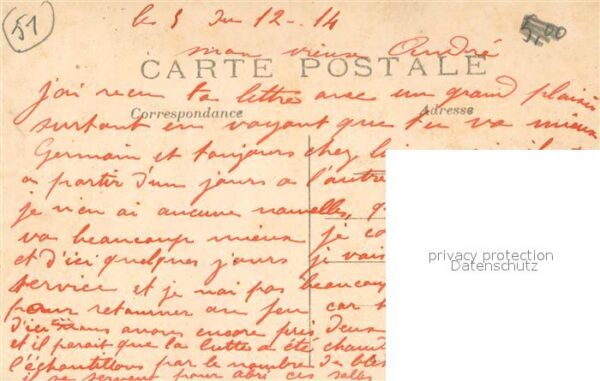 51
le 5 du 12-14
mon vieux André
CARTE POSTALE
j'ai recu ta lettre avec un grand plaisir
Correspondance
Adresse
surtout en voyant que tu va mieux
Germain et toujours chez
a partir d'un jours a l'autre
je n'en ai aucune nouvelles,
va beaucoup mieux je
et d'ici quelques jours je vais
service et je n'ai pas beaucoup
pour retourner au feu car
d'ici nous avons encore pris deux
et il parait que la lutte a été chaud
l'échantillons par le nombre de
il se servent pour abri ces
privacy protection
Datenschutz